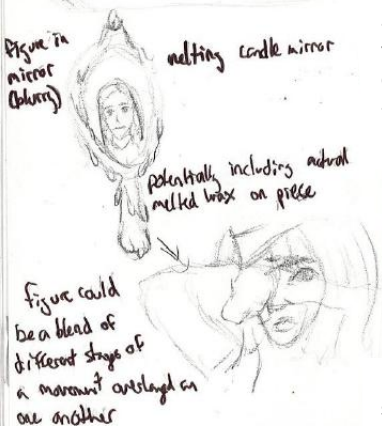 figure in
mirror
(blurry)
melting candle mirror
potentially including actual
melted wax on piece
figure could
be a blend of
different stages of
a movement overlayed on
one another